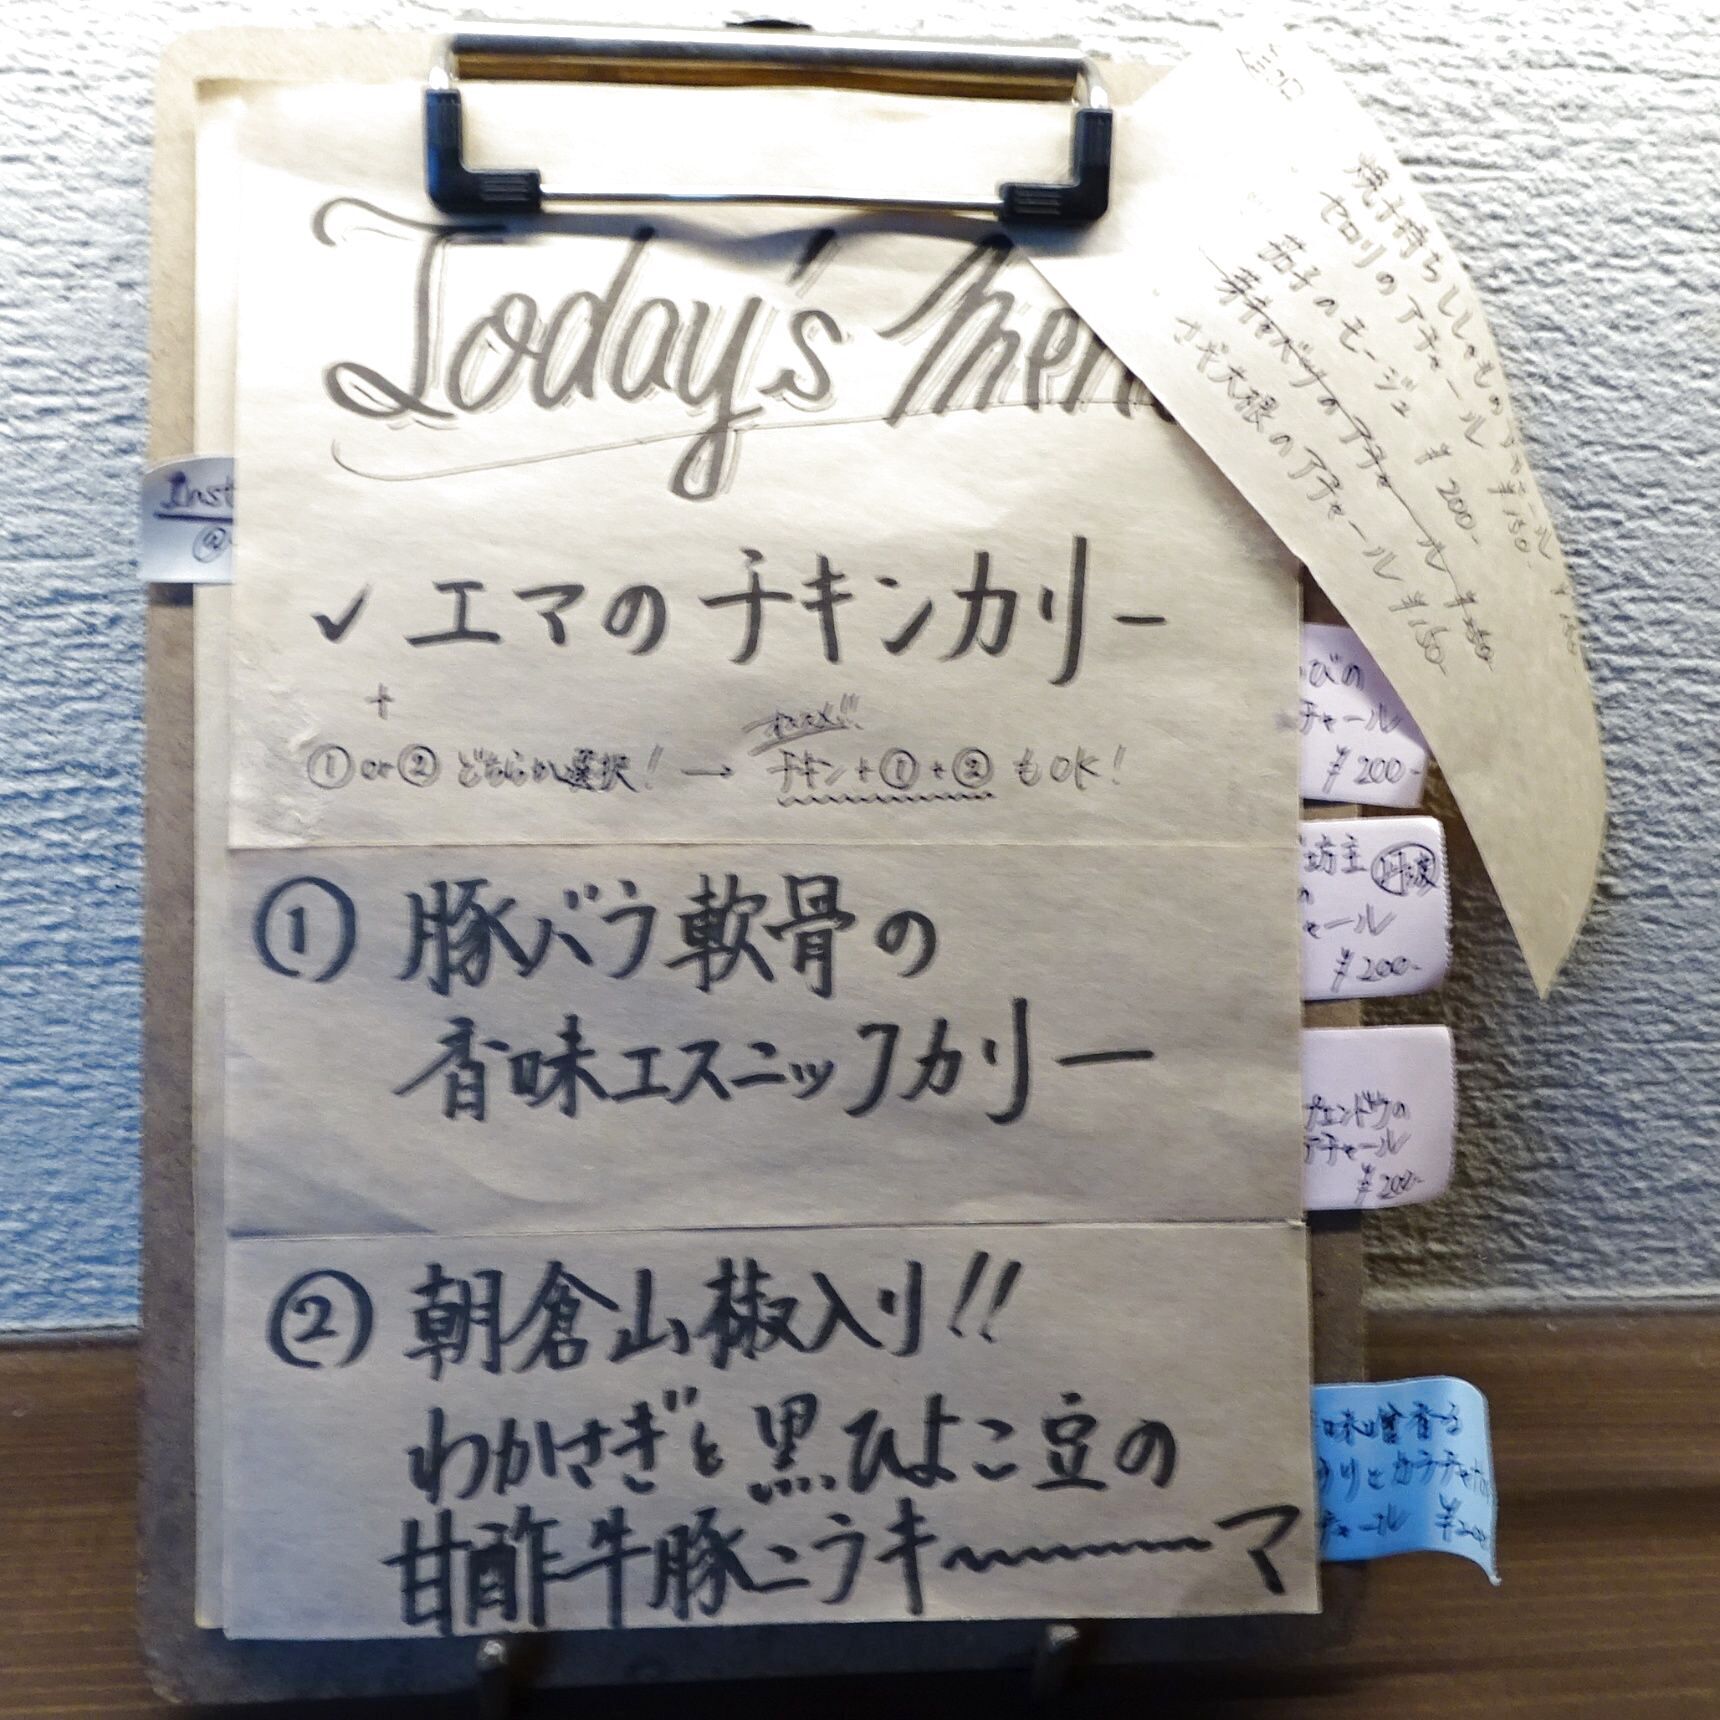 Today's Men
✓ エマのチキンカリー
+
オススメ!!
① or ② どちらか選択! → チキン+①+② もOK!
① 豚バラ軟骨の
香味エスニックカリー
② 朝倉山椒入り!!
わかさぎと黒ひよこ豆の
甘酢牛豚ニラキ〜〜〜マ
Inst
@
焼子持ちししゃものアチャール ¥150
セロリのアチャール ¥150
茄子のモージュ ¥200-
芽キャベツのアチャール ¥250
大根のアチャール ¥150
びの
チャール
¥200-
坊主
の
ャール
¥200-
エンドウの
アチャール
¥200-
味噌香る
チャール ¥200